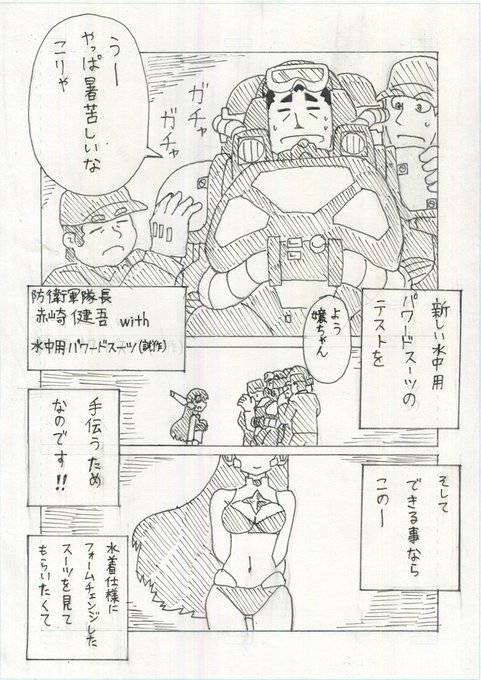 うー
やっぱ暑苦しいな
こりゃ
ガチャ
ガチャ
防衛軍隊長
赤崎 健吾 with
水中用パワードスーツ(試作)
新しい水中用
パワードスーツの
テストを
よう
嬢ちゃん
手伝うため
なのです!!
そして
できる事なら
このー
水着仕様に
フォームチェンジした
スーツを見て
もらいたくて